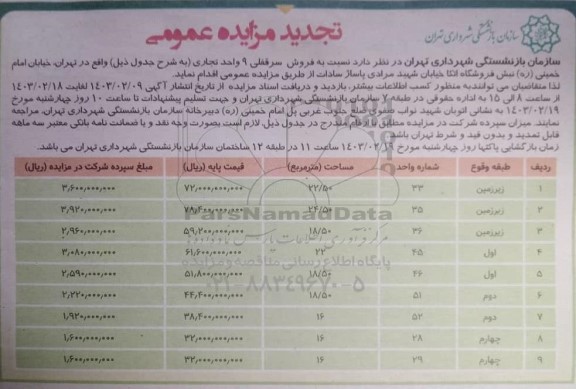 تجدید مزایده عمومی
سازمان بازنشستگی شهرداری تهران
سازمان بازنشستگی شهرداری تهران در نظر دارد نسبت به فروش سرقفلی ۹ واحد تجاری (به شرح جدول ذیل) واقع در تهران، خیابان امام
خمینی (ره) نبش فروشگاه اتکا خیابان شهید مرادی پاساژ سادات از طریق مزایده عمومی اقدام نماید.
لذا متقاضیان می توانند به منظور کسب اطلاعات بیشتر، بازدید و دریافت اسناد مزایده از تاریخ انتشار آگهی ۱۴۰۳/۰۲/۰۹ لغایت ۱۴۰۳/۰۲/۱۸
از ساعت ۸ الی ۱۵ به اداره حقوقی در طبقه ۷ سازمان بازنشستگی شهرداری تهران و جهت تسلیم پیشنهادات تا ساعت ۱۰ روز چهارشنبه مورخ
۱۴۰۳/۰۲/۱۹ به نشانی اتوبان شهید نواب صفوی ضلع جنوب غربی پل امام خمینی (ره) دبیرخانه سازمان بازنشستگی شهرداری تهران، مراجعه
نمایند. میزان سپرده شرکت در مزایده مطابق با ارقام مندرج در جدول ذیل لازم است بصورت وجه نقد و یا ضمانت نامه بانکی معتبر سه ماهه
قابل تمدید و بدون قید و شرط تهران باشد.
زمان بازگشایی پاکتها روز چهارشنبه مورخ ۱۴۰۳/۰۲/۱۹ ساعت ۱۱ در طبقه ۱۲ ساختمان سازمان بازنشستگی شهرداری تهران می باشد.
ردیف طبقه وقوع شماره واحد مساحت (مترمربع) قیمت پایه (ریال) مبلغ سپرده شرکت در مزایده (ریال)
۱ زیرزمین ۳۳ ۲۲/۵۰ ۷۲,۰۰۰,۰۰۰,۰۰۰ ۳,۶۰۰,۰۰۰,۰۰۰
۲ زیرزمین ۳۵ ۲۴/۵۰ ۷۸,۴۰۰,۰۰۰,۰۰۰ ۳,۹۲۰,۰۰۰,۰۰۰
۳ زیرزمین ۳۶ ۱۸/۵۰ ۵۹,۲۰۰,۰۰۰,۰۰۰ ۲,۹۶۰,۰۰۰,۰۰۰
۴ اول ۴۵ ۲۲ ۶۱,۶۰۰,۰۰۰,۰۰۰ ۳,۰۸۰,۰۰۰,۰۰۰
۵ اول ۴۶ ۱۸/۵۰ ۵۱,۸۰۰,۰۰۰,۰۰۰ ۲,۵۹۰,۰۰۰,۰۰۰
۶ دوم ۵۱ ۱۸/۵۰ ۴۴,۴۰۰,۰۰۰,۰۰۰ ۲,۲۲۰,۰۰۰,۰۰۰
۷ دوم ۵۲ ۱۶ ۳۸,۴۰۰,۰۰۰,۰۰۰ ۱,۹۲۰,۰۰۰,۰۰۰
۸ چهارم ۲۸ ۱۶ ۳۲,۰۰۰,۰۰۰,۰۰۰ ۱,۶۰۰,۰۰۰,۰۰۰
۹ چهارم ۲۹ ۱۶ ۳۲,۰۰۰,۰۰۰,۰۰۰ ۱,۶۰۰,۰۰۰,۰۰۰
ParsNamadData
مرکز فرآوری اطلاعات پارس نماد داده ها
پایگاه اطلاع رسانی مناقصه و مزایده
۰۲۱-۸۸۳۴۹۶۷۰-۵